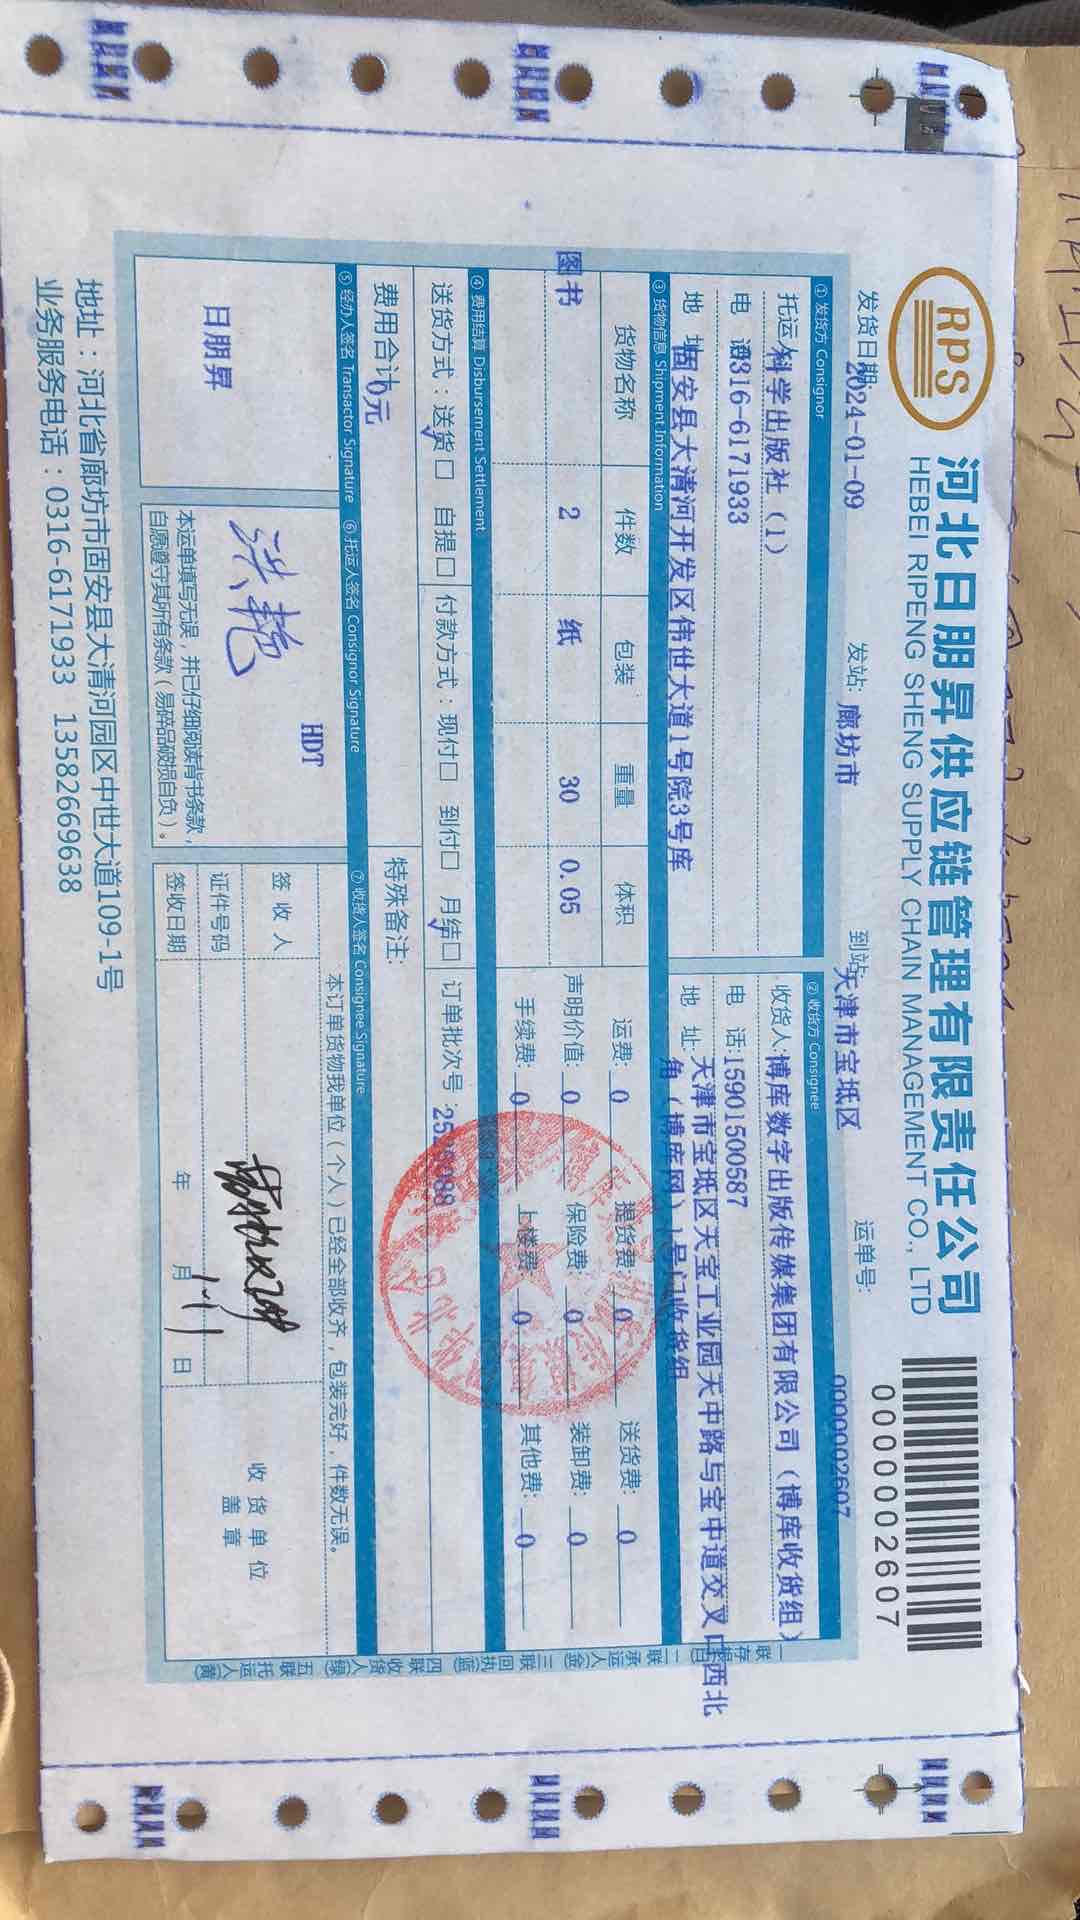 RPS
河北日朋昇供应链管理有限责任公司
HEBEI RIPENG SHENG SUPPLY CHAIN MANAGEMENT CO., LTD
0000002607
发货日期:2024-01-09 发站: 廊坊市 到站:天津市宝坻区 运单号: 0000002607
① 发货方 Consignor
② 收货方 Consignee
托运人:科学出版社（1）
收货人:博库数字出版传媒集团有限公司（博库收货组）
电 话:0316-6171933
电 话:15901500587
地 址:固安县大清河开发区伟世大道1号院3号库
地 址:天津市宝坻区天宝工业园天中路与宝中道交叉口西北
角（博库网）1号门收货组
③ 货物信息 Shipment Information
货物名称 件数 包装 重量 体积
运费: 0 提货费: 0 送货费: 0
图书 2 纸 30 0.05
声明价值: 0 保险费: 0 装卸费: 0
手续费: 0 上楼费: 0 其他费: 0
④ 费用结算 Disbursement Settlement
送货方式：送货□ 自提□ 付款方式：现付□ 到付□ 月结□ 订单批次号:
费用合计:0元
特殊备注:
⑤ 经办人签名 Transactor Signature ⑥ 托运人签名 Consignor Signature ⑦ 收货人签名 Consignee Signature
日朋昇
HDT
本运单填写无误，并已仔细阅读背书条款，
自愿遵守其所有条款（易碎品破损自负）。
本订单货物我单位（个人）已经全部收齐，包装完好，件数无误。
签 收 人
证件号码
签收日期 年 月 日
收 货 单 位
盖 章
一联存根(白) 二联承运人(金) 三联回执(蓝) 四联收货人(绿) 五联托运人(黄)
地址：河北省廊坊市固安县大清河园区中世大道109-1号
业务服务电话：0316-6171933 13582669638